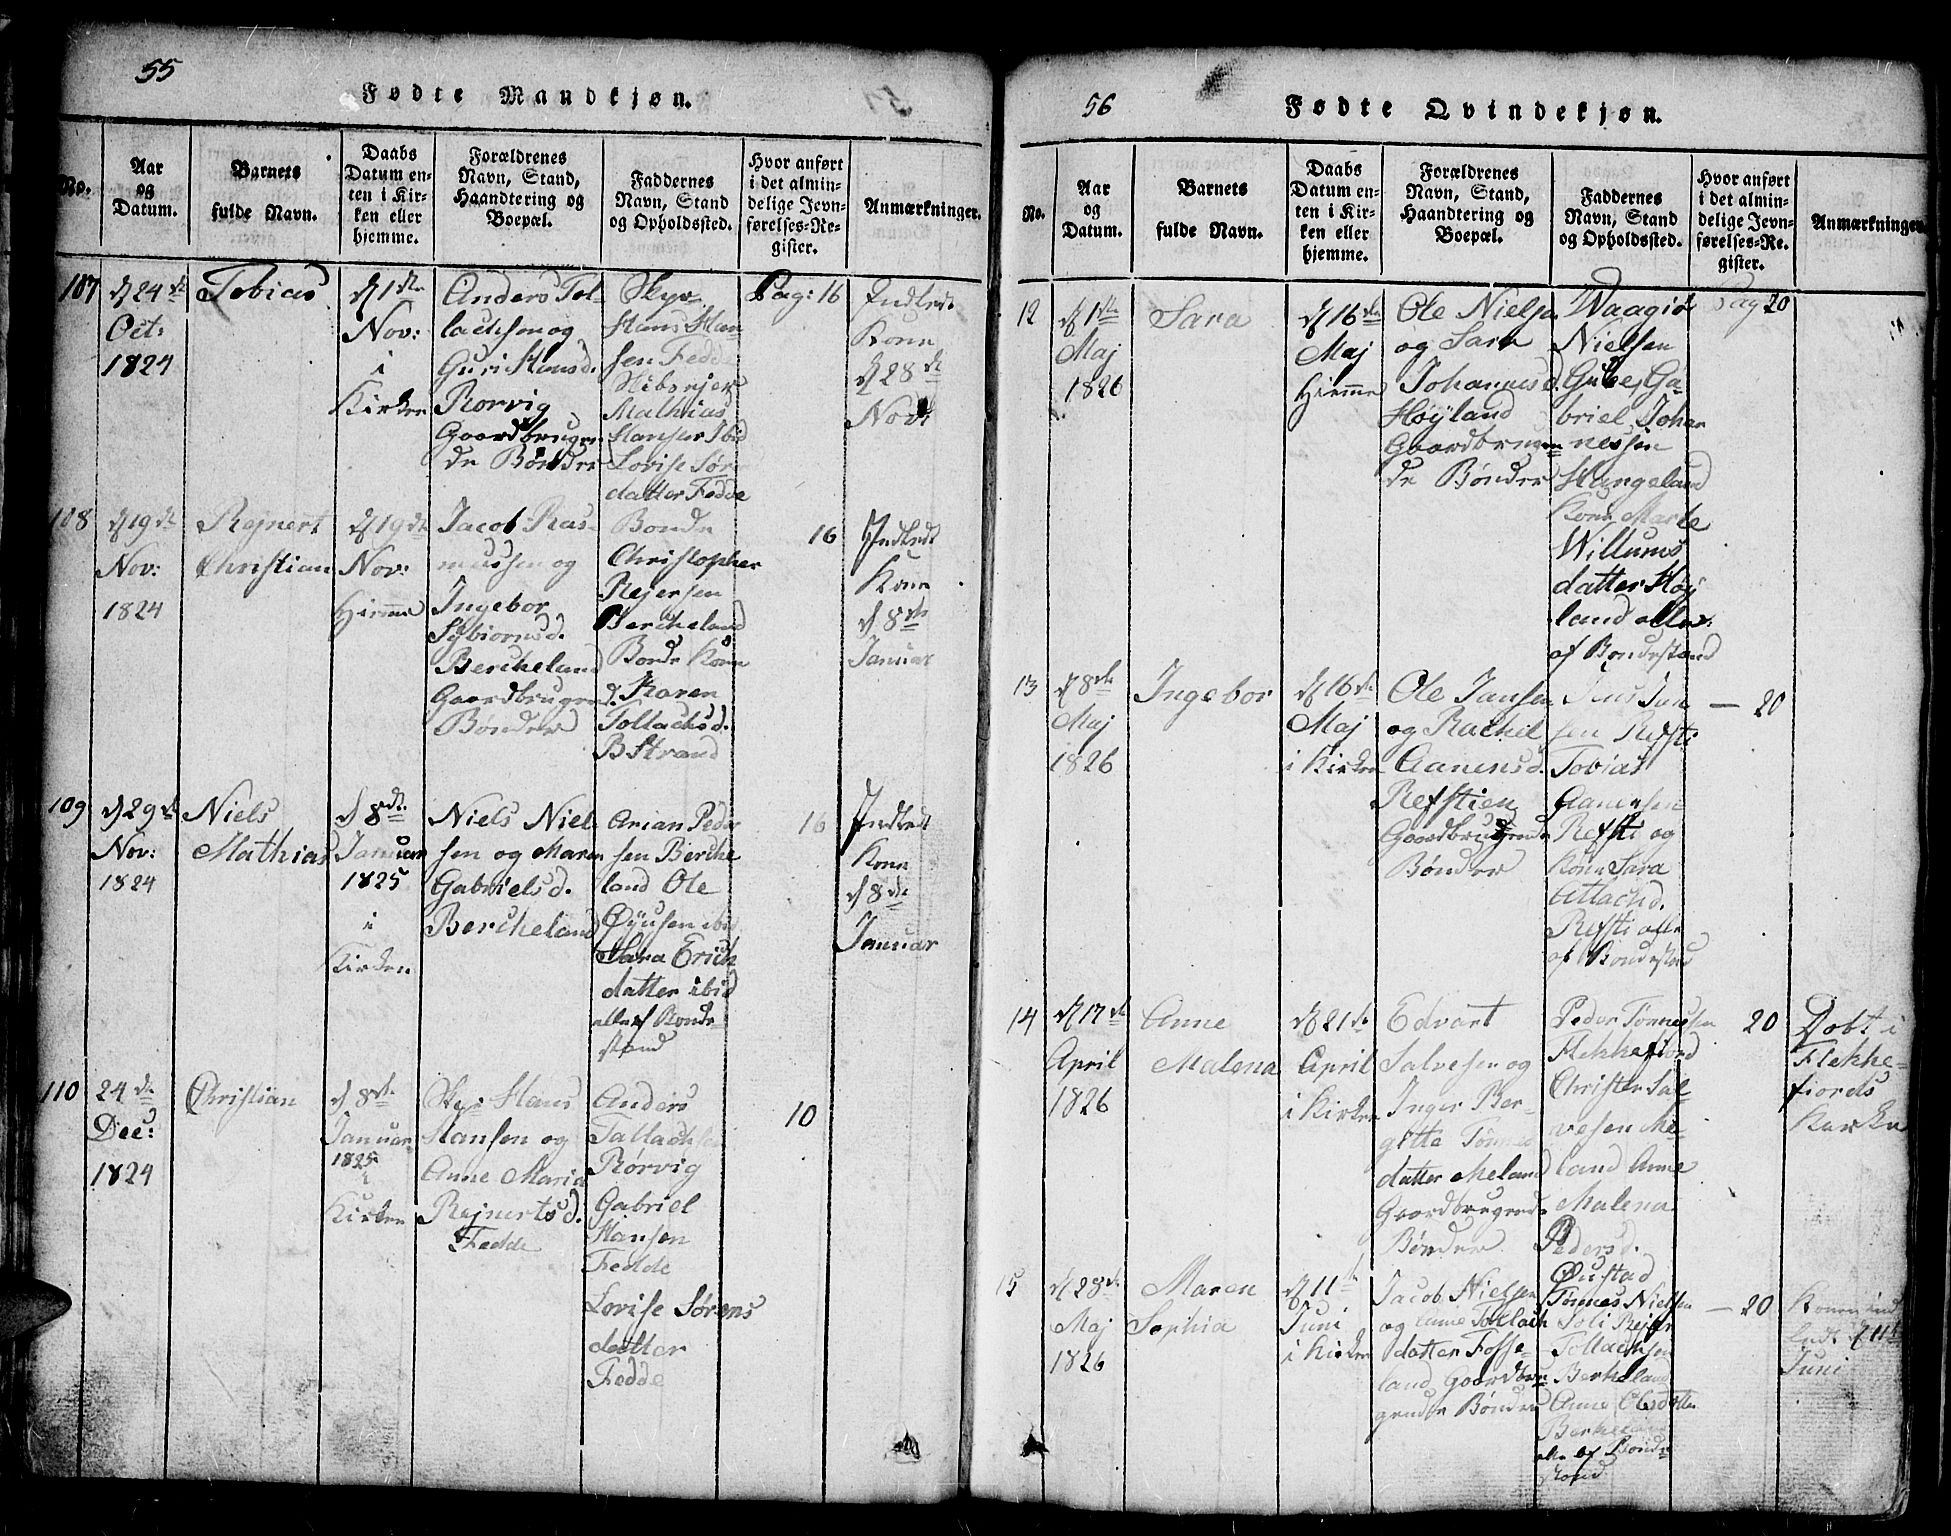 55
Fødte Mandkjøn.
No.
Aar
og
Datum.
Barnets
fulde Navn.
Daabs
Datum en-
ten i Kir-
ken eller
hjemme.
Forældrenes
Navn, Stand,
Haandtering og
Boepæl.
Faddernes
Navn, Stand
og Opholdssted.
Hvor anført
i det almin-
delige Jevn-
førelses-Re-
gister.
Anmærkninger.
107
d 24de
Oct:
1824
Tobias
d 1ste
Nov:
i
Kirken
Anders Tol-
lachsen og
Guri Hansd.
Rørvig
Gaardbrugen
de Bønder
Skys-
Hans Han
sen Fedde
Mathias
Hansen Ibid
Lovise Sør
datter Fedde
Pag: 16
Indledt
Konn
d 28de
Nov:
108
d 19de
Nov:
1824
Rejnert
Christian
d 19de
Nov:
Hiemme
Jacob Ras-
mussen og
Ingebor
Berckeland
Gaardbrugend.
Bønder
Bonde
Christopher
Rejersen
Berckeland
Bonde Konn
Karen
Tollachsd.
B Strand
16
Indledt
Konn
d 8de
Januar
109
d 29de
Nov:
1824
Niels
Mathias
d 8de
Januar
1825
i
Kirken
Niels Niel
sen og Maren
Gabrielsd.
Berckeland
Arian Peder
sen Bercke
land Ole
Øÿusen ibid
Sara Erich
datter ibid
alle af Bonde-
stand
16
Indledt
Konn
d 8de
Januar
110
24de
Dec:
1824
Christian
d 8de
Januar
1825
i
Kirken
Hans
Hansen og
Anne Maria
Rejnertsd.
Fedde
Anders
Tallachsen
Rørvig
Gabriel
Hansen
Fedde
Lovise Sørens
datter
Fedde
10
56
Fødte Qvindekjøn.
No.
Aar
og
Datum.
Barnets
fulde Navn.
Daabs
Datum en-
ten i Kir-
ken eller
hjemme.
Forældrenes
Navn, Stand,
Haandtering og
Boepæl.
Faddernes
Navn, Stand
og Opholdssted.
Hvor anført
i det almin-
delige Jevn-
førelses-Re-
gister.
Anmærkninger
12
d 1ste
Maj
1826
Sara
d 16de
Maj
Hiemme
Ole Nielsen
og Sara
Johannesd.
Høyland
Gaardbrugen
de Bønder
Waagiø
Nielsen
Ga-
briel Johan
nessen
Stangeland
Konn Marte
Willums
datter Høj
land alle
af Bondestand
Pag 20
13
d 8de
Maj
1826
Ingebor
d 16de
Maj
i Kirken
Ole Jansen
og Rachel
Aanensd.
Refstien
Gaardbrugende
Bønder
Jens Jan
sen Refsti
Tobias
Aanensen
Refsti og
Konn Sara
Atlachd.
Refsti alle
af Bondestand
— 20
14
d 17de
April
1826
Anne
Malena
d 21de
April
i Kirken
Edvart
Salvesen og
Inger Ber-
gitte Tønnes
datter Meland
Gaardbrugende
Bønder
Peder Tønnessen
Flekkefiord
Christen Sal
vesen Me-
land Anne
Malena
Pedersd.
Øustad
20
Døbt i
Flekke-
fiords
Kirke
15
d 28de
Maj
1826
Maren
Sophia
d 11te
Juni
i Kirken
Jacob Nielsen
og Anne Tollach
datter Fosse-
land Gaardbru-
gende Bønder
Tønnes Nielsen
Toli Rejer
Tollachsen
Berkeland
Anne Olesdatter
Berkeland
alle af Bonde
stand
— 20
Konen ind
ledt d 11te
Juni